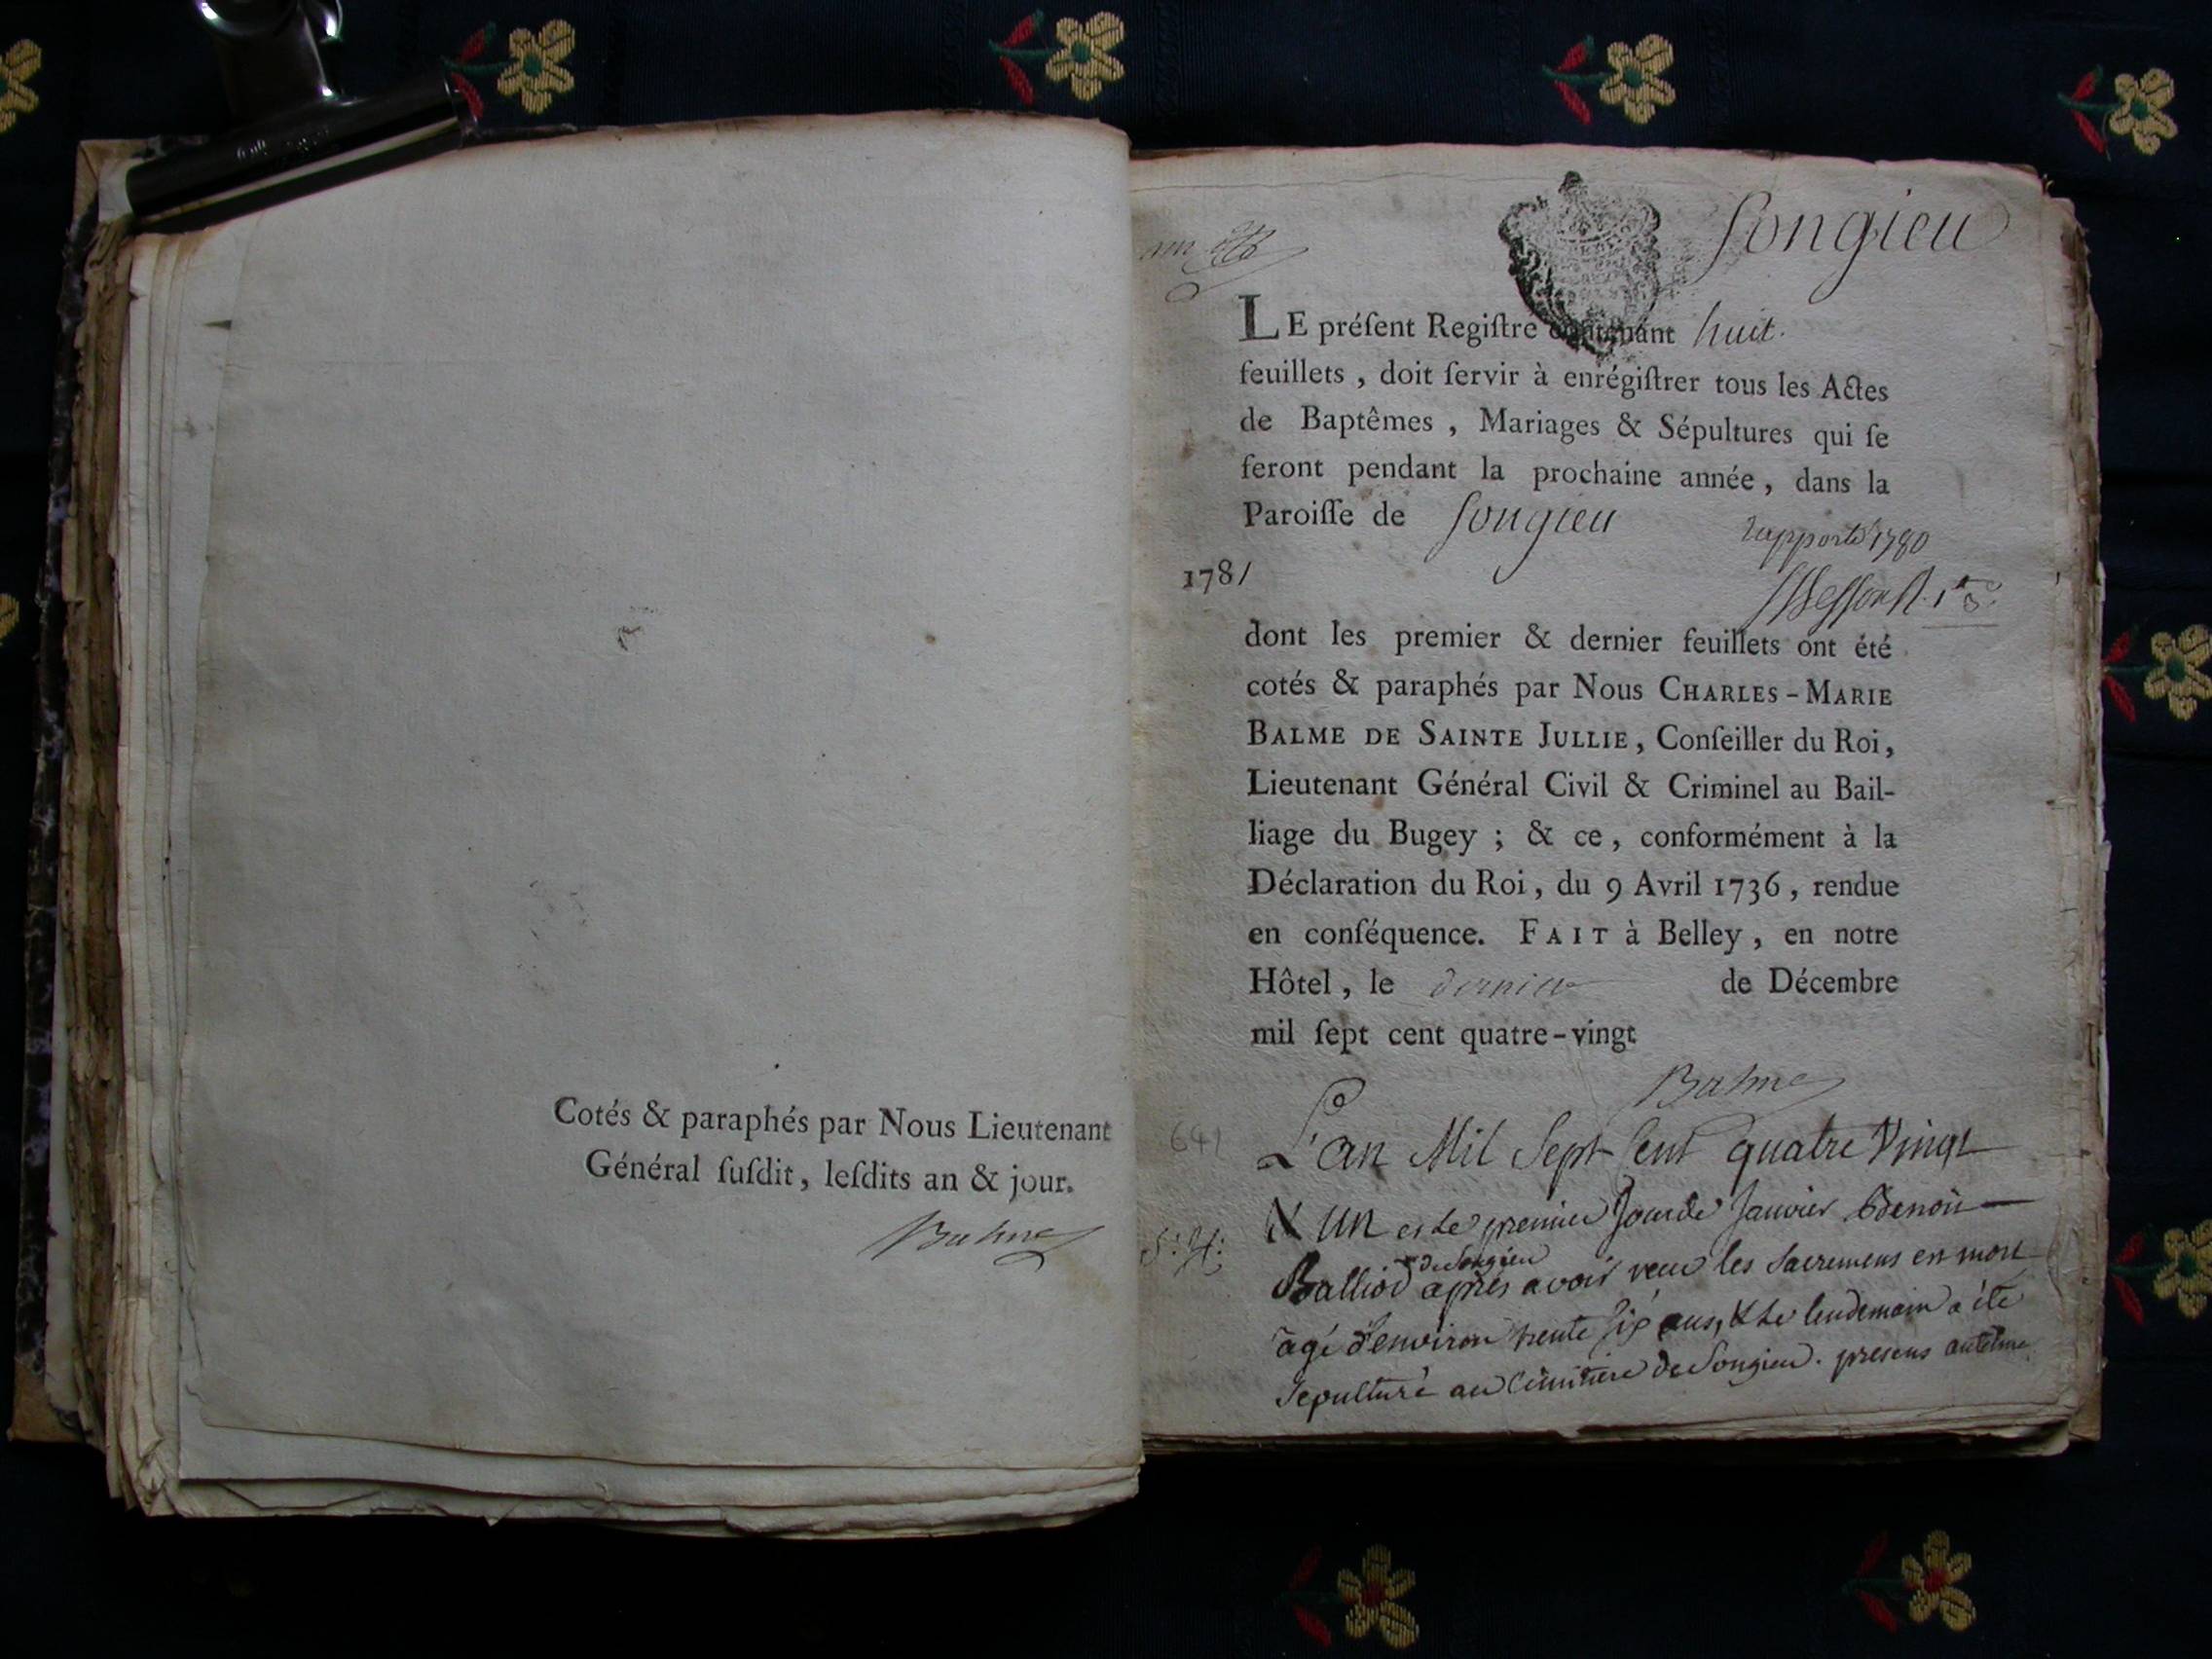 Cotés & paraphés par Nous Lieutenant
Général ſuſdit, leſdits an & jour.
Balme
Songieu
LE préſent Regiſtre contenant huit.
feuillets, doit ſervir à enrégiſtrer tous les Actes
de Baptêmes, Mariages & Sépultures qui ſe
feront pendant la prochaine année, dans la
Paroiſſe de Songieu
rapporté 1780
1781
dont les premier & dernier feuillets ont été
cotés & paraphés par Nous CHARLES-MARIE
BALME DE SAINTE JULLIE, Conſeiller du Roi,
Lieutenant Général Civil & Criminel au Bail-
liage du Bugey ; & ce, conformément à la
Déclaration du Roi, du 9 Avril 1736, rendue
en conſéquence. FAIT à Belley, en notre
Hôtel, le dernier de Décembre
mil ſept cent quatre-vingt
Balme
641
L'an Mil Sept Cent quatre Vingt
& un et le premier Jour de Janvier Benoit
de Songieu
Balliod après avoir reçu les Sacremens est mort
agé d'environ trente six ans, & le lendemain a été
Sepulturé au Cimitiere de Songieu. presens antelme